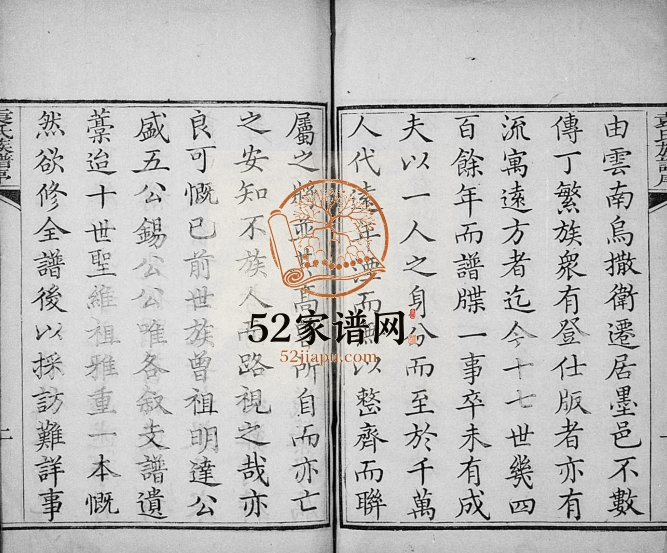 由雲南烏撒衛遷居墨邑不數
傳丁繁族衆有登仕版者亦有
流寓遠方者迄今十七世幾四
百餘年而譜牒一事卒未有成
夫以一人之身分而至於千萬
人代遠年湮而無以整齊而聯
屬之將並其高所自而亦亡
之安知不族人而路視之哉亦
良可慨已前世族曾祖明達公
盛五公錫公公唯各敘支譜遺
藁迨十世聖維祖雅重一本慨
然欲修全譜後以採訪難詳事
袁氏族譜序
52家谱网
52jiapu.com